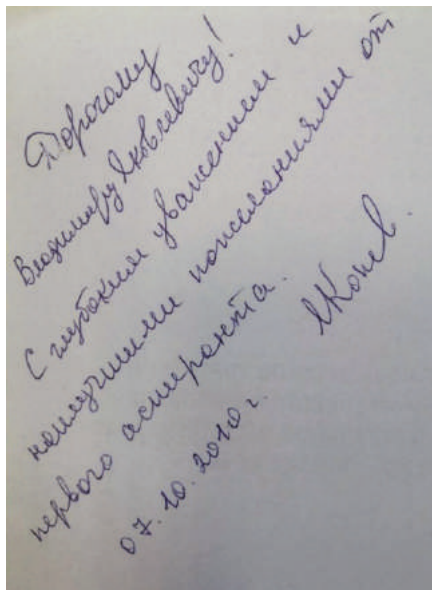 Дорогому
Владимиру Яковлевичу!
С глубоким уважением и
наилучшими пожеланиями от
первого аспиранта.
07.10.2010 г.